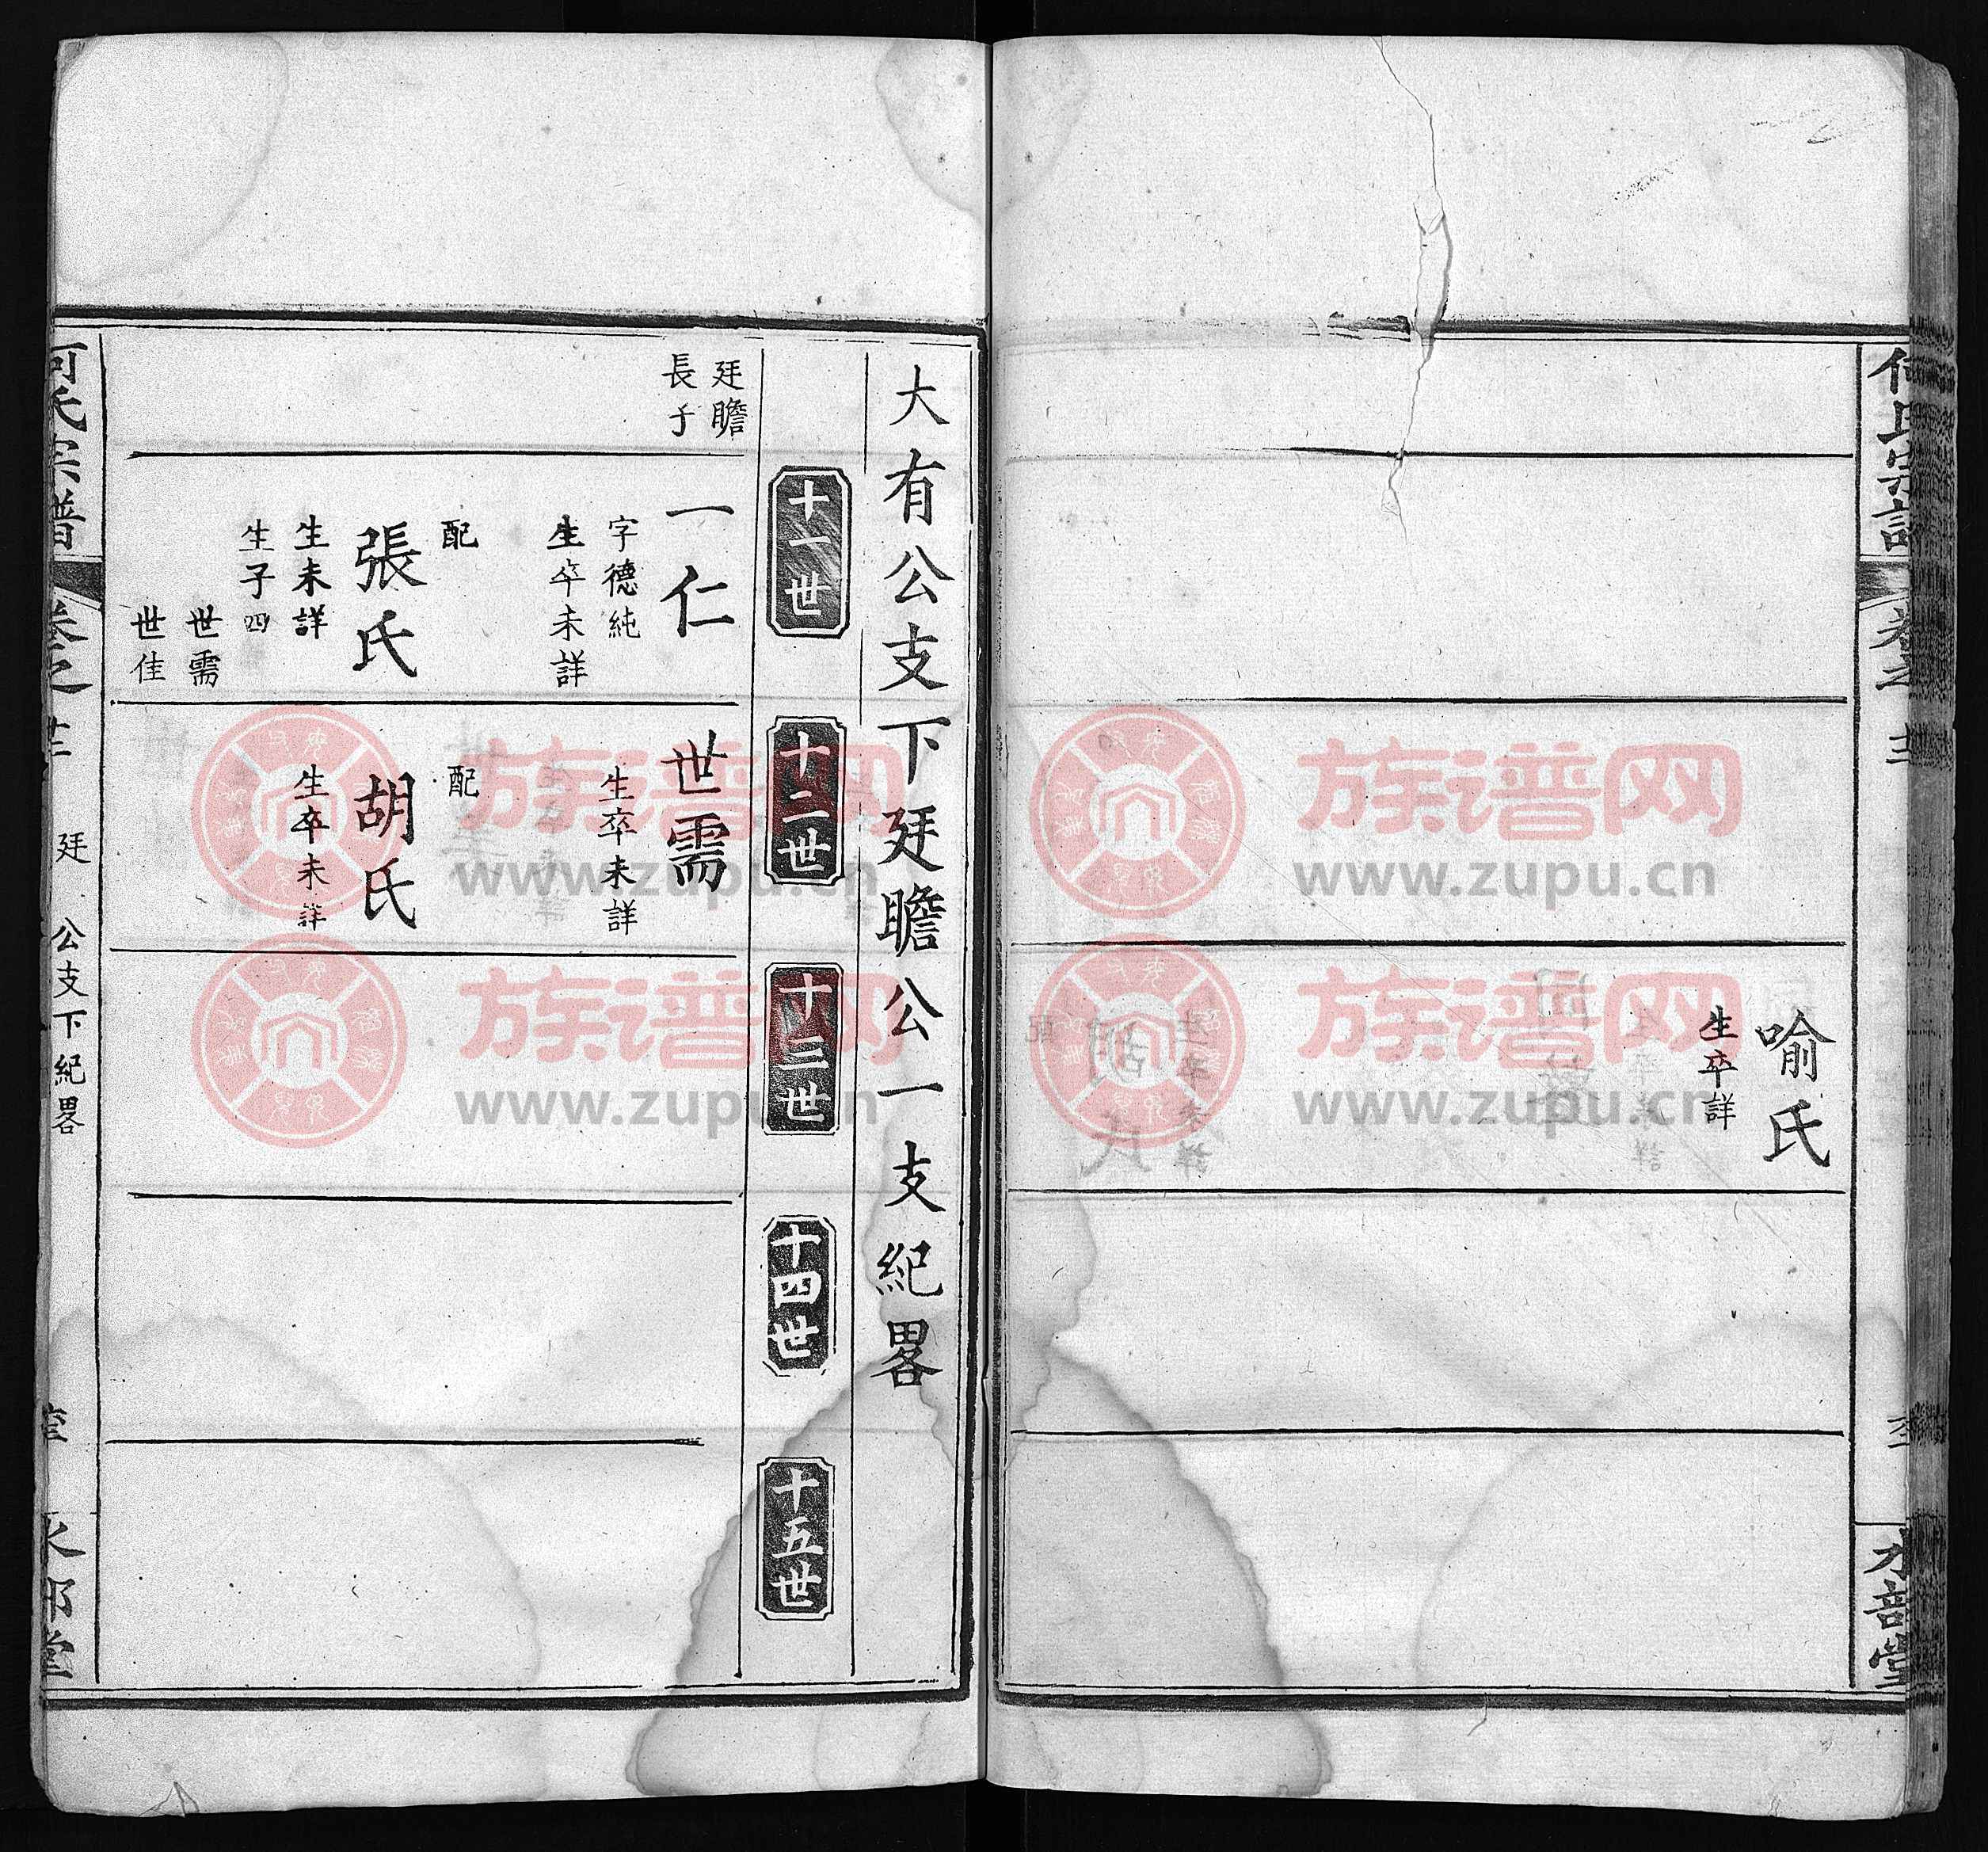 何氏宗譜
水部堂
喻氏
生卒詳
大有公支下廷瞻公一支紀畧
十一世
十二世
十三世
十四世
十五世
廷瞻
長子
一仁
字德純
生卒未詳
配
張氏
生未詳
生子四
世需
世佳
世需
生卒未詳
配
胡氏
生卒未詳
何氏宗譜
卷之
廷
公支下紀畧
水部堂
族谱网
www.zupu.cn
族谱网
www.zupu.cn
族谱网
www.zupu.cn
族谱网
www.zupu.cn